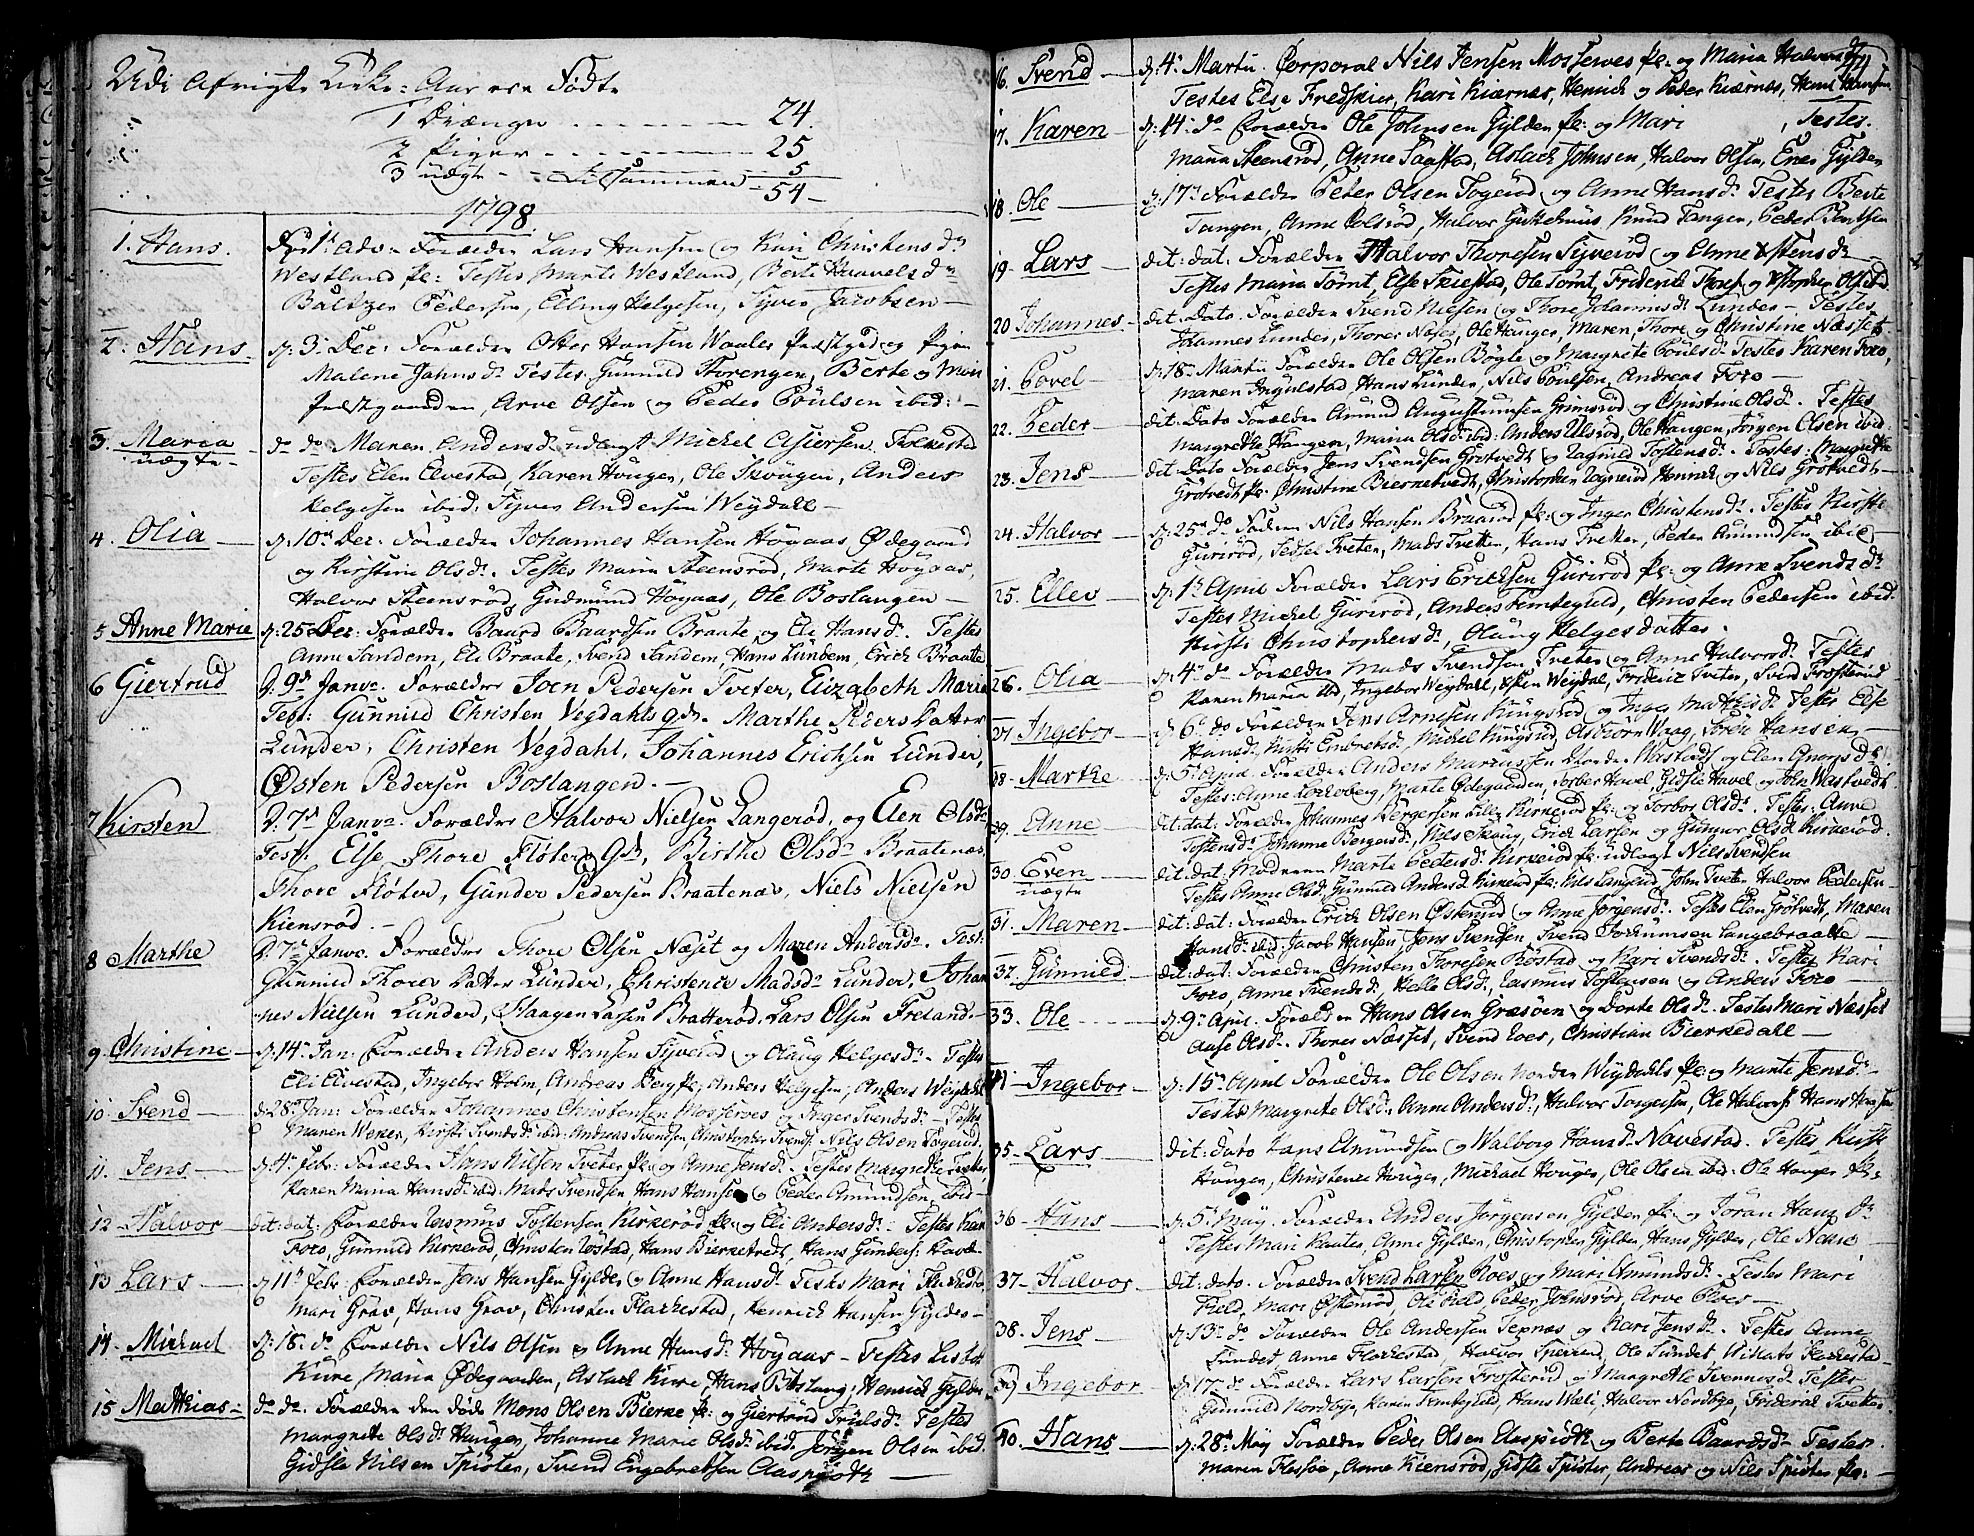 Udi afvigte Kirke: Aar ere Fødte
1 Drænger - - - - - - 24
2 Piger - - - - - - 25
3 uægte - - 5
Tilsammen - 54 -
1798.
1. Hans. Lars Hansen og Kari Christens dr
Westland Testes Marte Westland, Berte Haavels dr
Baltzer Pedersen, Elling Helgesen, Syver Jacobsen -
2. Hans d: 3 Dec: Forældre Otter Hansen Waaler og Pigen
Malene Jahns dr Testes Gunnild Thorengen, Berte og Mari
Præstegaarden, Arve Olsen og Peder Poulsen ibid: -
3. Maria do do Maren Anders dr udlagt Michel Folkestad
uægte - Testes Elen Elvestad, Karen Hougen, Ole Skougen, Anders
Helgesen ibid: Syver Andersen Weydall -
4. Olia - d: 10 Dec: Forældre Johannes Hansen Høyaas Ødegaard
og Kirstine Ols dr. Testes Maria Steensrød, Marte Høyaas,
Halvor Steensrød, Gudmund Høyaas, Ole Boslangen -
5 Anne Marie d: 25 Dec: Forældre Baard Baardsen Braate og Eli Hans dr. Testes
Anne Sandem, Eli Braate, Svend Sandem, Hans Lundem, Erich Braate
6 Giertrud D. 9 Janv. Forældre Joen Pedersen Tveter, Elizabeth Marie
Test: Gunnild Christen Vegdahls Marthe Peders Datter
Lunder, Christen Vegdahl, Johannes Erichsen Lunder,
Østen Pedersen Boslangen. -
7 Kirsten D. 7 Janv. Forældre Halvor Nielsen Langerød, og Elen Olsdr
Test. Else Thore Fløter Birthe Olsdr Braatenær,
Thore Fløter, Gunder Pedersen Braatenær, Niels Nielsen
Kiensrød. -
8 Marthe D. 7 Janv. Forældre Thore Olsen Næset og Maren Andersdr. Test:
Gunnild Thores Datter Lunder, Christence Madsdr Lunder, Johan
nes Nielsen Lunder, Haagen Larsen Bratterød, Lars Olsen Freland. -
9 Christine - d: 14 Jan: Forældre Anders Hansen Syverød og Olaug Helges dr - Testes
Eli Elvestad, Ingebor Holm, Andreas Berg, Anders Helgesen, Anders Weydahl
10. Svend - d: 28 Jan: Forældre Johannes Christensen Mosserves og Inger Svends dr. Testes
Maren Kirsti Svends dr ibid: Andreas Svendsen, Christopher Svends: Nils Olsen Togerød.
11. Jens - d: 4 Febr: Forældre Hans Nilsen Tveter og Anne Jens dr - Testes Margrethe Tveter,
Karen Maria Hans dr ibid: Mads Svendsen Hans Hansen og Peder Amundsen, ibid -
12 Halvor - dit: dat: Forældre Rasmus Tostensen Kirkerød og Eli Anders dr - Testes Kari
Foro, Gunnild Kirkerød, Christen Røstad, Hans Bierketvedt, Hans Gunders:
13 Lars - d: 11 Febr: Forældre Jens Hansen Gylder og Anne Hans dr Testes Mari
Mari Grav, Hans Grav, Christen Flackestad, Henrich Hansen Gylder -
14 Michael d: 18 do Forældre Nils Olsen og Anne Hans dr Høyaas - Testes
Kure, Maria Ødegaarden, Aslach Kure, Hans Boslang: Henrich Gylder
15 Mathias - do do: Forældre den døde Mons Olsen Bierke og Giertrud Truls dr Testes
Margrete Ols dr Haugen, Johanne Marie Ols dr ibid. Jørgen Olsen ibid.
Gidsle Nilsen Spiøter, Svend Engebretsen Aaspiødt -
16. Svend - d: 4 Martii. Corporal Nils Jensen Mosserves og Maria Halvors dr
Testes Else Fredskier, Kari Kiærnæs, Henrich og Peder Kiærnæs, Hans Hansen
17. Karen - d: 14 do Forældre Ole Johnsen Gylden og Mari , Testes
Maria Steensrød, Anne Saastad, Aslach Johnsen, Halvor Olsen, Ener Gylden
18. Ole - d: 17 Forældre Peder Olsen Togerød og Anne Hans dr Testes Berte
Tangen, Anne Halvor Knud Tangen, Peder Bentsen
19. Lars dit: dat: Forældre Halvor Thoresen Syverød og Anne Østens dr
Testes Maria Tømt, Else Skiestad, Ole Tømt, Friderik og
20 Johannes - dit: Dato. Forældre Svend Nielsen og Thore Johannis dr Lunder - Testes
Johannes Lunder, Thorer Næset, Ole Hougen, Maren, Thore og Christine Næsset
21. Povel - d: 18 Martii Forældre Ole Olsen Bøgle og Margrete Pouls dr Testes Karen Foro,
Maren Ingulstad Hans Lunder, Nils Poulsen, Andreas Foro -
22. Peder - dit: Dato Forældre Amund Augustinusen Grimsrød og Christine Ols dr. Testes
Margrethe Haugen, Maria Ols dr ibid: Anders Ulsrød, Ole Haugen, Jørgen Olsen ibid.
23. Jens - dit: Dato Forældre Jens Svendsen Grøtvedt og Ragnild Tostens dr. Testes: Margrethe
Grøtvedt Christine Bierketvedt, Christopher Henrich og Nils Grøtvedt -
24. Halvor d: 25 do Forældre Nils Hansen Braarød og Inger Christens dr. Testes Kirsti
Gurirød, Sidsel Tveten, Mads Tvetten, Hans Tvetten, Peder Amundsen ibid -
25. Ellev - d: 1 April Forældre Lars Ericksen Gurirød og Anne Svends dr
Testes Michel Gurirød, Anders Femtegield, Christen Pedersen ibid:
Kirsti Christophers dr, Olaug Helges datter.
26. Olia - d: 4 do Forældre Mads Svendsen Tveter og Anne Halvors dr Testes
Karen Maria Ingebor Weydall, Weydal, Friderik Tveter, Svend Frosterud
27. Ingebor - d: 6 do Forældre Jens Arnesen Kingsrød og Inger Mathis dr Testes Else
Hans dr, Kirsti Embrets dr, Michel Kingsrød, Asbiørn Waag, Søren Hansen -
28. Marthe d: 5 April Forældre Anders Mariussen Wastvedt og Elen Gregers dr
Testes: Anne Marte Ødegaarden, Torber Havel, Gidsle Havel og John Wastvedt
29. Anne dit: dat: Forældre Johannes Børgersen Lille Kirkerød og Torbor Ols dr. Testes: Anne
Tostens dr Johanne Børgers dr, Nils Skaug, Erich Larsen og Gunnor Ols dr Kirkerød.
30. Even dit: dat: Moderen Marte Peders dr Kirkerød udlagt Nils Svendsen
uægte Testes Anne Ols dr Gunnild Anders dr Kirkerød Nils Langerød, John Tveten, Halvor Pedersen
31. Maren - dit: dat: Forældre Erick Olsen Østenrød og Anne Jørgens dr. Testes Elen Grøtvedt, Maren
Hans dr ibid: Jacob Hansen, Jens Svendsen, Svend Jochumsen Langebraatte -
32. Gunnild - dit: dat: Forældre Christen Thoresen Røstad og Kari Svends dr. Testes Kari
Foro, Anne Svends dr, Helle Ols dr, Rasmus Tostensen og Anders Foro -
33. Ole d: 9 April. Forældre Hans Olsen Græsøen og Dorte Ols dr. Testes Mari Næsset
Aase Ols dr. Thores Næsset, Svend Roes, Christian Bierkedall -
Ingebor - d: 15 April Forældre Ole Olsen Norden Weydahls og Marite Jens dr -
Testes Margrete Ols dr. Anne Anders dr, Halvor Torgersen, Ole Halvors: Hans Hansen
35. Lars - dit: dato Lars Amundsen og Walborg Hans dr Navestad. Testes Kirsti
Hougen, Christence Hougen, Michael Hougen, Ole Olsen ibid: Ole Houger
36 - Hans d: 5 May. Forældre Anders Jørgensen Gylder og Jøran Hans dr
Testes Mari Raatte, Anne Gylder, Christopher Gylder, Hans Gylder, Ole
37 - Halvor - dit: dato. Forældre Svend Larsen Roes og Mari Amunds dr - Testes Mari
Field, Mari Østenrød, Ole Field, Peder Johnsrød, Arve
38. Jens - d: 13 do Forældre Ole Andersen Sepnæs og Kari Jens dr. Testes Anne
Sundet, Anne Flackestad Halvor Ole Sundet Flackestad
39 Ingebor d: 17 do Forældre Lars Larsen Frosterud og Margrethe Svennes dr Testes
Gunnild Nordbye, Karen Femtegield, Hans Wæli, Halvor Nordbye, Friderik Tvetter.
40. Hans - d: 28 May Forældre Peder Olsen Aaspiødt og Berte Baards dr Testes
Maren Flessøe, Anne Kiensrød, Gidsle Spiøter, Andreas og Nils Spiøter